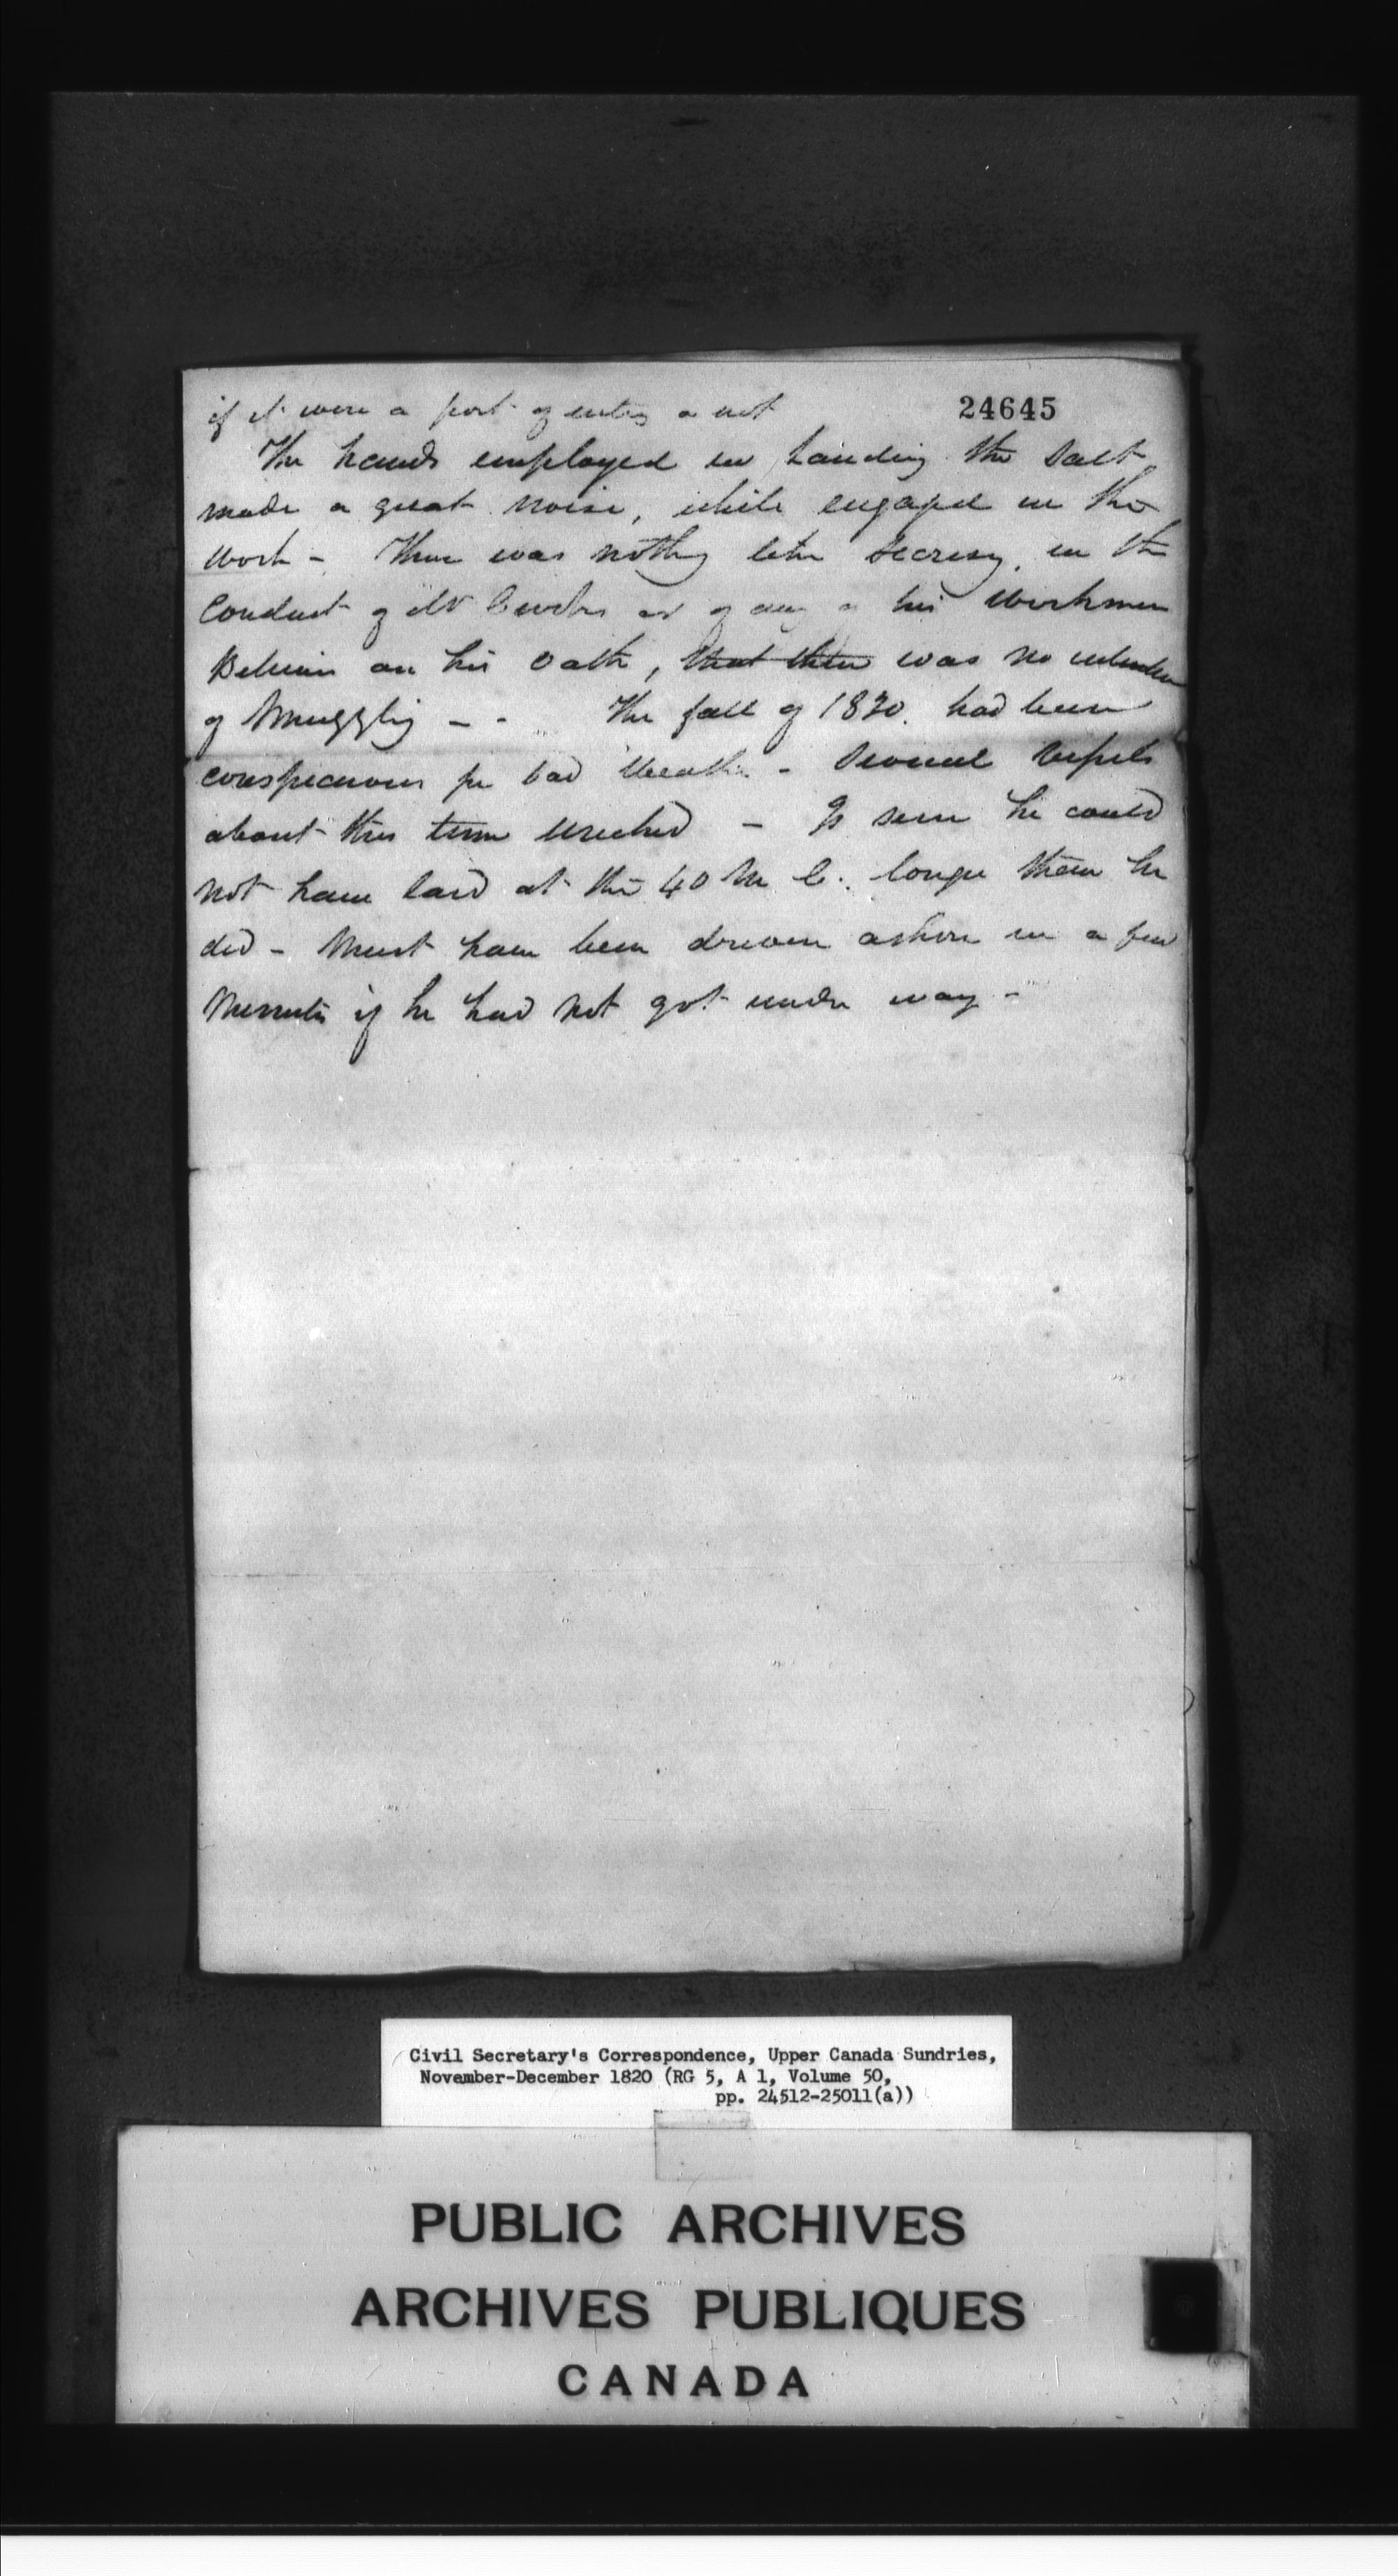 if it were a port of entry or not
24645
The hands employed in landing the Salt
made a great noise, while engaged in the
work - There was nothing like secresy, in the
Conduct of Mr or of any of his workmen
Believes on his Oath, that there was no intention
of Smuggling - - The fall of 1820. had been
conspicuous for bad Weather - Several Vessels
about this time wrecked - Is sure he could
not have laid at the 40 M C. longer than he
did - Must have been driven ashore in a few
Minutes if he had not got under way -
Civil Secretary's Correspondence, Upper Canada Sundries,
November-December 1820 (RG 5, A 1, Volume 50,
pp. 24512-25011(a))
PUBLIC ARCHIVES
ARCHIVES PUBLIQUES
CANADA